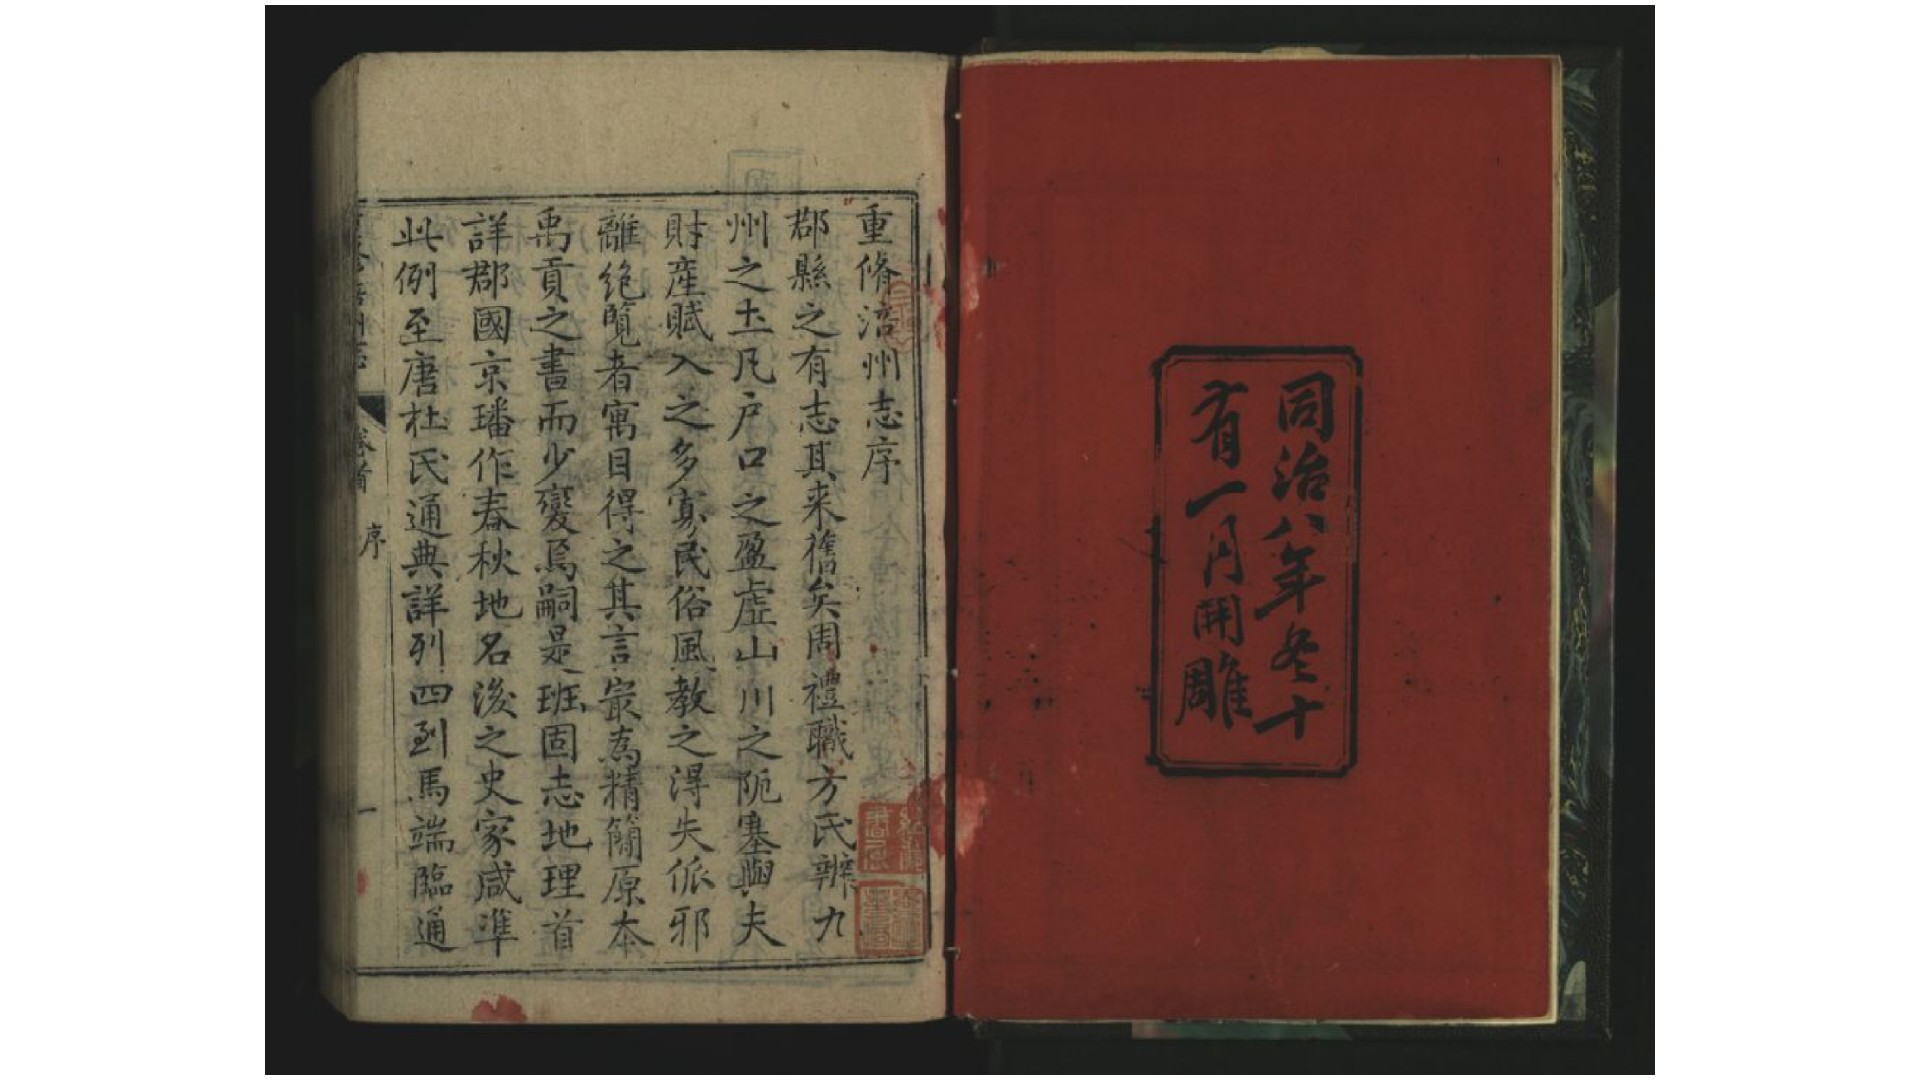 同治八年冬十
有一月開雕
重脩涪州志序
郡縣之有志其来舊矣周禮職方氏辨九
州之土凡户口之盈虛山川之阨塞與夫
財產賦入之多寡民俗風教之淂失俛邪
離绝覧者寓目得之其言冣為精簡原本
禹貢之書而少變焉嗣是班固志地理首
詳郡國京璠作春秋地名後之史家咸準
此例至唐杜氏通典詳列四到馬端臨通
卷首
序
一